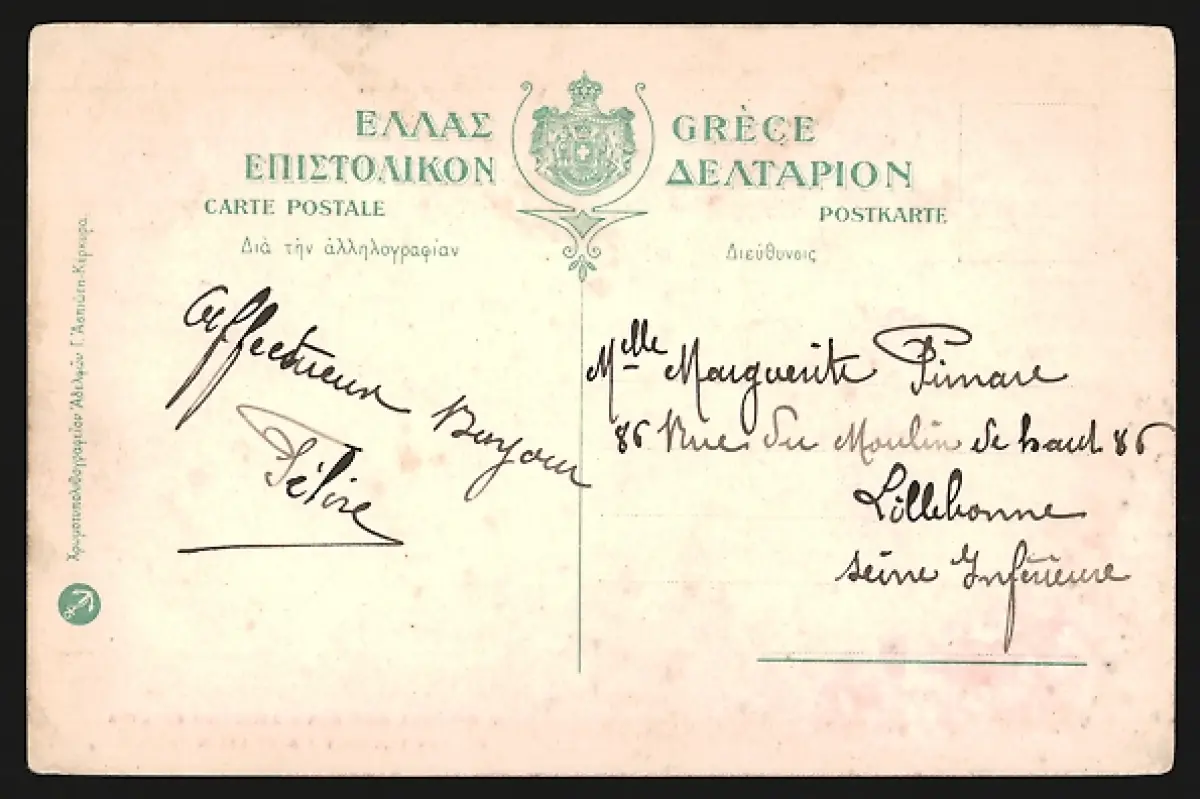 ΕΛΛΑΣ GRÈCE
ΕΠΙΣΤΟΛΙΚΟΝ ΔΕΛΤΑΡΙΟΝ
CARTE POSTALE POSTKARTE
Διὰ τὴν ἀλληλογραφίαν Διεύθυνσις
Χρωμοτυπολιθογραφεῖον Ἀδελφῶν Γ. Ἀσπιώτη-Κέρκυρα
affectueux Bonjour
Melle Marguerite Pimare
86 Rue du Moulin de haut 86
Lillebonne
Seine Inférieure